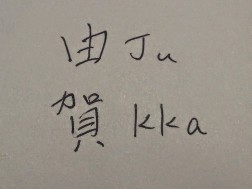 由 Ju
賀 kka